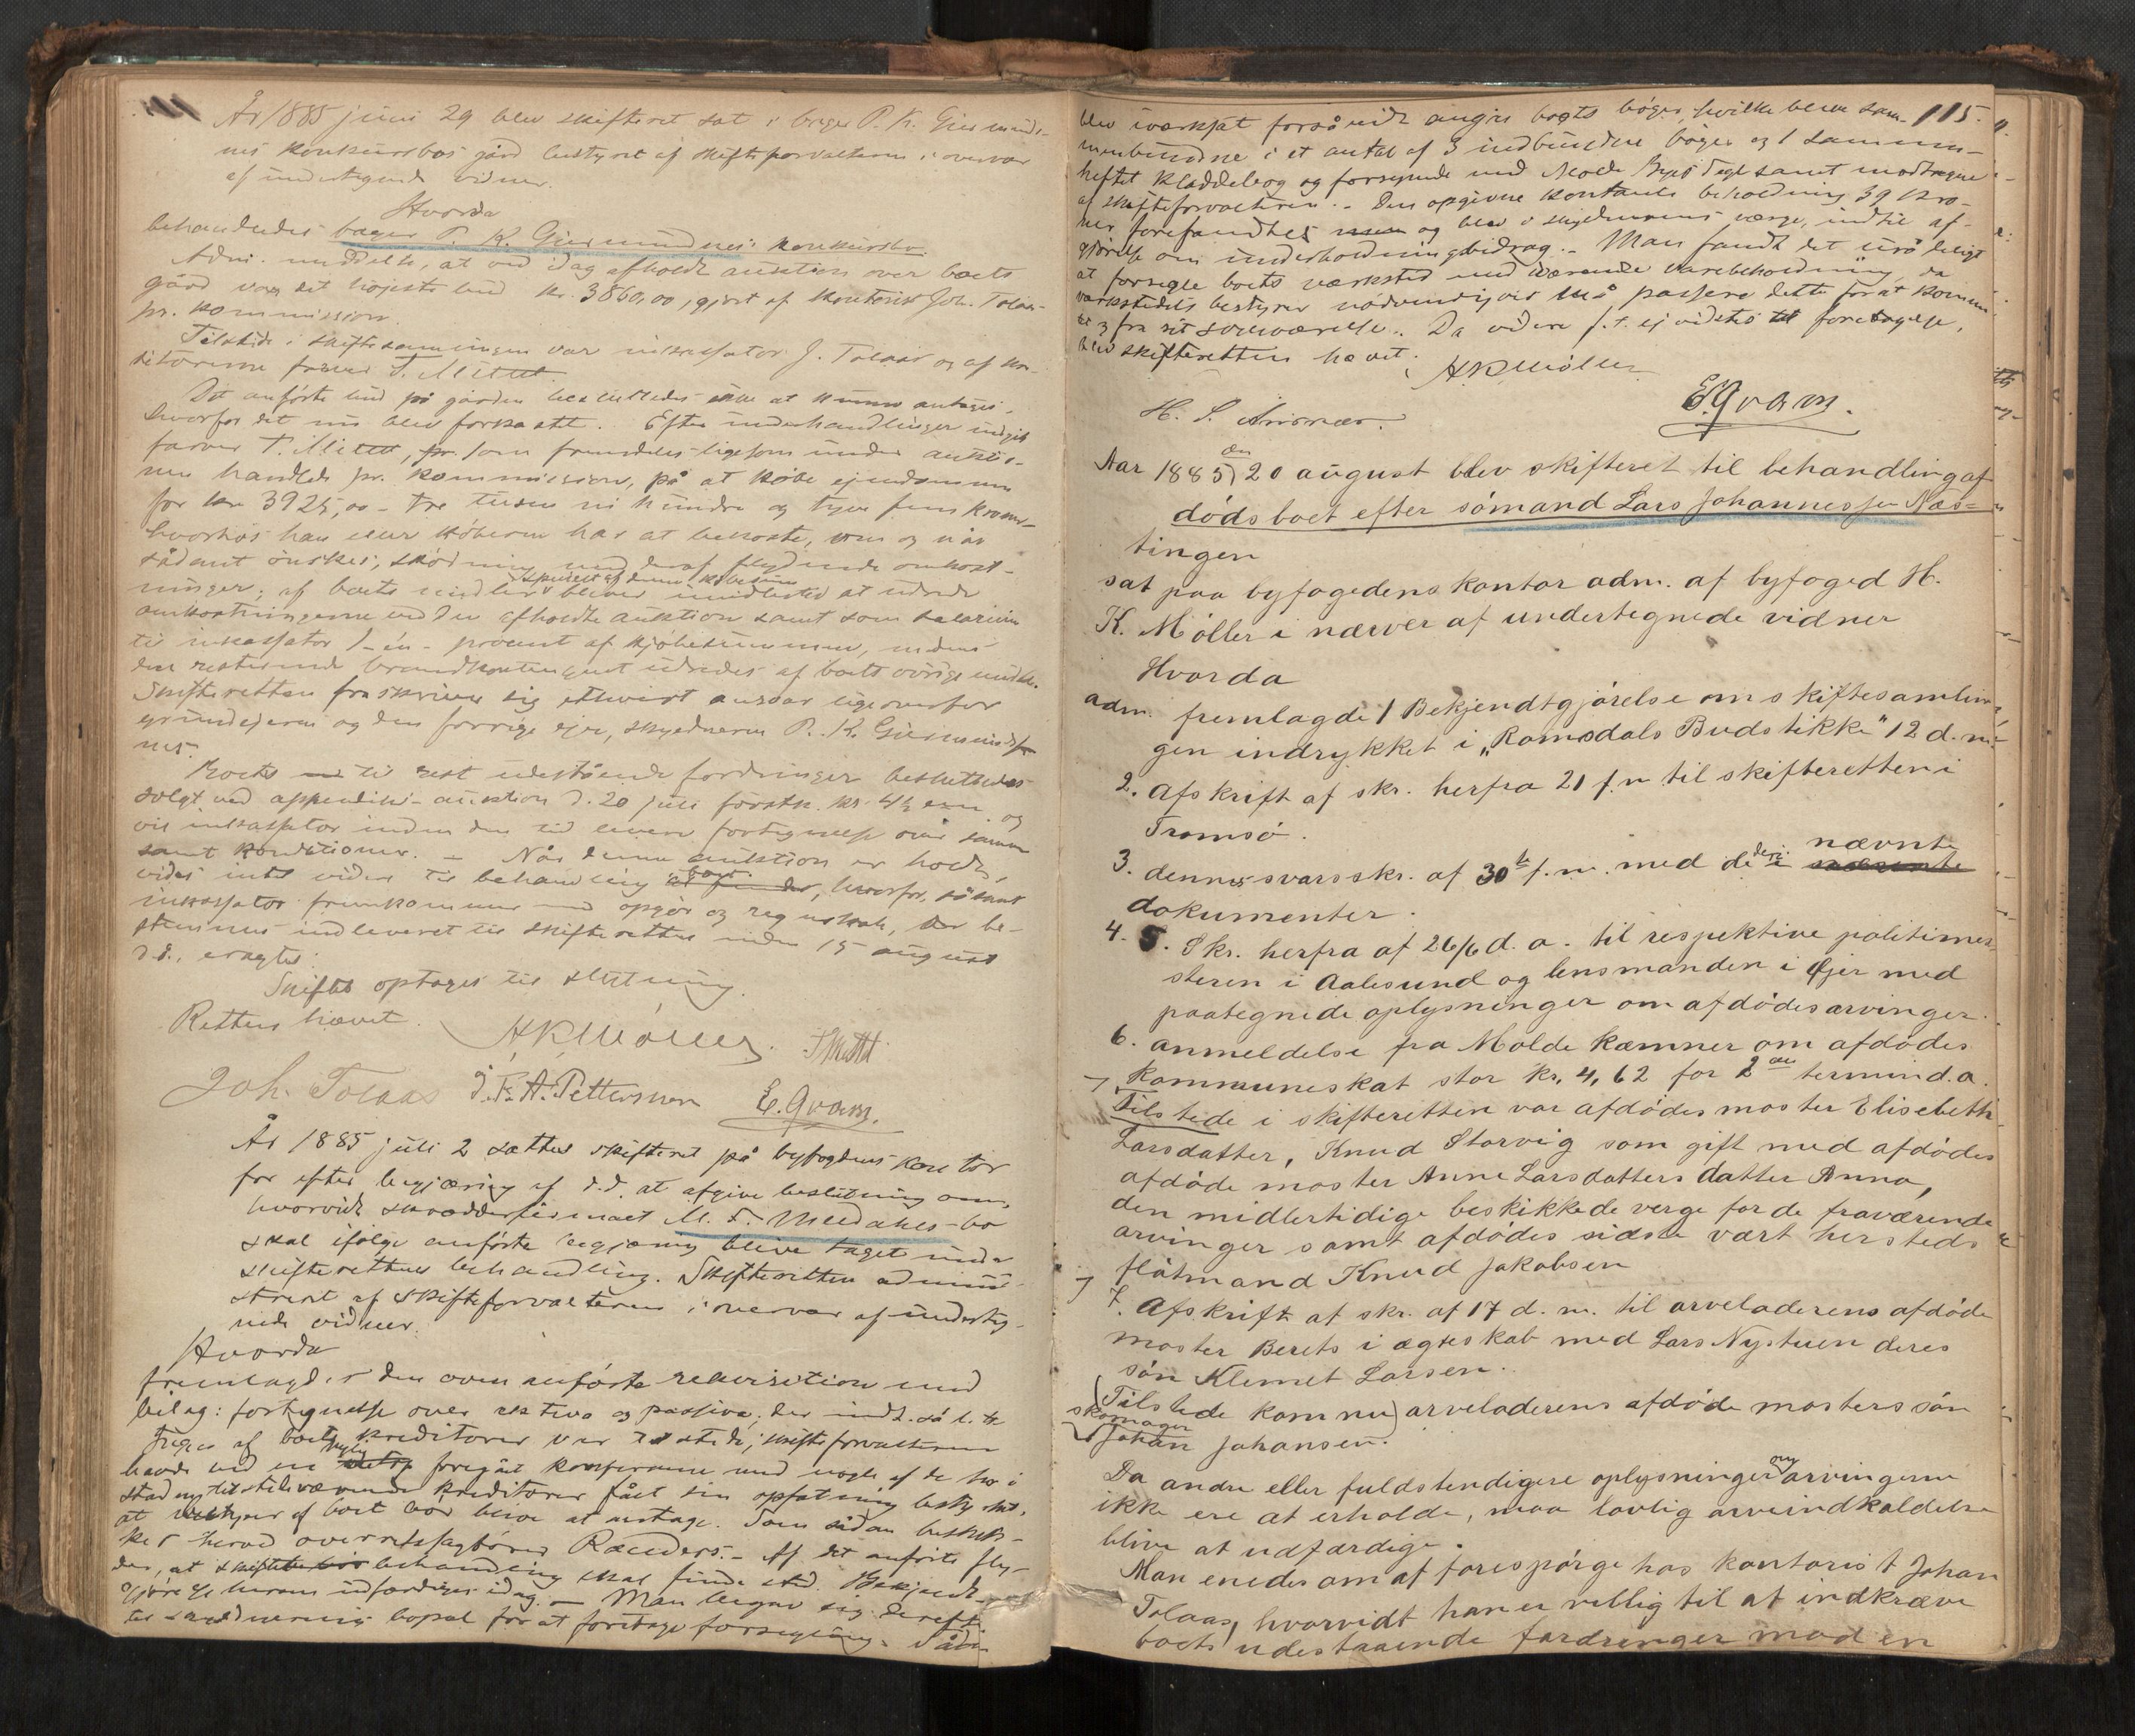 År 1885 juni 29 blev skifteret sat i bager P. K. Giermunds-
nes konkursbos gård bestyret af skifteforvalteren i overvær
af undertegnede vidner.
Hvorda
behandledes bager P. K. Giermundnes' konkursbo.
Adm. meddelte, at ved idag afholdt auktion over boets
gård var det højeste bud kr. 3860,00, gjort af kontorist Joh. Tolaas
pr. kommission.
Tilstede i skiftesamlingen var inkassator J. Tolaas og af kre-
ditorerne farver T.
Det anførte bud på gården besluttedes ikke at kunne antages,
hvorfor det nu blev forkastt. Efter underhandlinger indgik
farver T. som fremdeles ligesom under auktio-
nen handlede pr. kommission, på at købe ejendommen
for kr. 3925,00 - tre tusen ni hundre og tyve fem kroner -
hvorhos han eller køberen har at bekoste, om og når
sådant ønskes, skødning med deraf flydende omkost-
ninger; af boets midler bliver imidlertid at udrede
omkostningerne ved den afholdte auktion samt som salarium
til inkassator 1 - én - procent af kjøbesummen, medens
den resterende brandkontingent udredes af boets øvrige midler.
Skifteretten fraskriver sig ethvert ansvar ligeoverfor
grundejeren og den forrige ejer, skyldneren P. K. Giermunds-
nes.
Boets til rest udestående fordringer besluttedes
solgt ved appendiks-auktion d. 20 juli førstk. kl. 4½ em. og
vil inkassator inden den tid levere fortegnelse over samme
samt konditioner. - Når denne auktion er holdt,
vides intet videre til behandling i boet, hvorfor, såsnart
inkassator fremkommer med opgør og regnskab, der be-
stemmes indleveret til skifteretten inden 15 august
d.å., eragtes:
Skiftet optages til slutning.
Retten hævet.
H K Møller
Joh. Tolaas J. Fr. A. Pettersen E. Qvam.
År 1885 juli 2 sattes skifteret på byfogdens kontor
for efter begjæring af d.d. at afgive beslutning om,
hvorvidt skrædderfirmaet M. F. bo
skal ifølge anførte begjæring blive taget under
skifterettens behandling. Skifteretten admini-
streret af skifteforvalteren i overvær af underteg-
nede vidner.
Hvorda
fremlagdes den oven anførte rekvisition med
bilag: fortegnelse over aktiva og passiva; der
af boets kreditorer var tilstede; skifteforvalteren
havde ved en nylig foregået konference med nogle af de her i
staden kreditorer fået sin opfatning bestyrket,
at bestyrer af boet bør blive at antage. Som sådan beskik-
kes herved overretssagfører Ræeders. - Af det anførte fly-
der, at skiftebehandling skal finde sted. Bekjendt-
gjørelse herom udfærdiges idag. - Man begav sig derefter
til skyldnerens bopæl for at foretage forsegling. Sådan
115.
blev iverksat forsåvidt angår boets bøger, hvilke blev sam-
menbundne i et antal af 3 indbundne bøger og 1 sammen-
heftet kladdebog og forsynede med Molde Byes segl samt modtagne
af skifteforvalteren. - Den opgivne kontante beholdning 39 kro-
ner forefandtes og blev i skyldnerens værge, indtil af-
gjørelse om underholdningsbidrag. - Man fandt det urådeligt
at forsegle boets værksted med værende varebeholdning, da
værkstedets bestyrer nødvendigvis må passere dette for at komme
til og fra sit soveværelse. Da videre f. t. ej vidstes til foretagelse,
blev skifteretten hævet.
H K Møller
H. S. E. Qvam.
Aar 1885 den 20 august blev skifteret til behandling af
dødsboet efter sømand Lars Johannessen Næs-
tingen
sat paa byfogedens kontor adm. af byfoged H.
K. Møller i nærvær af undertegnede vidner
Hvorda
adm. fremlagde 1 Bekjendtgjørelse om skiftesamlin-
gen indrykket i „Romsdals Budstikke" 12 d. m.
2. Afskrift af skr. herfra 21 f. m. til skifteretten i
Tromsø.
3. dennes svarsskr. af 30te f. m. med de deri nævnte
dokumenter.
4. 5. Skr. herfra af 26/6 d. a. til respektive politimes-
steren i Aalesund og lensmanden i Ejer med
paategnede oplysninger om afdødes arvinger.
6. anmeldelse fra Molde kæmner om afdødes
kommuneskat stor kr. 4,62 for 2den termin d. a.
Tilstede i skifteretten var afdødes moster Elisebeth
Larsdatter, Knud Storvig som gift med afdødes
afdøde moster Anne Larsdatters datter Anna,
den midlertidige beskikkede verge for de fraværende
arvinger samt afdødes sidste vært hersteds
flåtmand Knud Jakobsen
7. Afskrift af skr. af 17 d. m. til arveladerens afdøde
moster Berets i ægteskab med Lars Nystuen deres
søn Klemet Larsen.
Tilstede kom nu arveladerens afdøde mosters søn
skomager
Johan Johansen.
Da andre eller fuldstendigere oplysninger om arvingerne
ikke ere at erholde, maa lovlig arveindkaldelse
blive at udfærdige.
Man enedes om at forespørge hos kontorist Johan
Tolaas, hvorvidt han er villig til at indkræve
boets udestaaende fordringer mod en